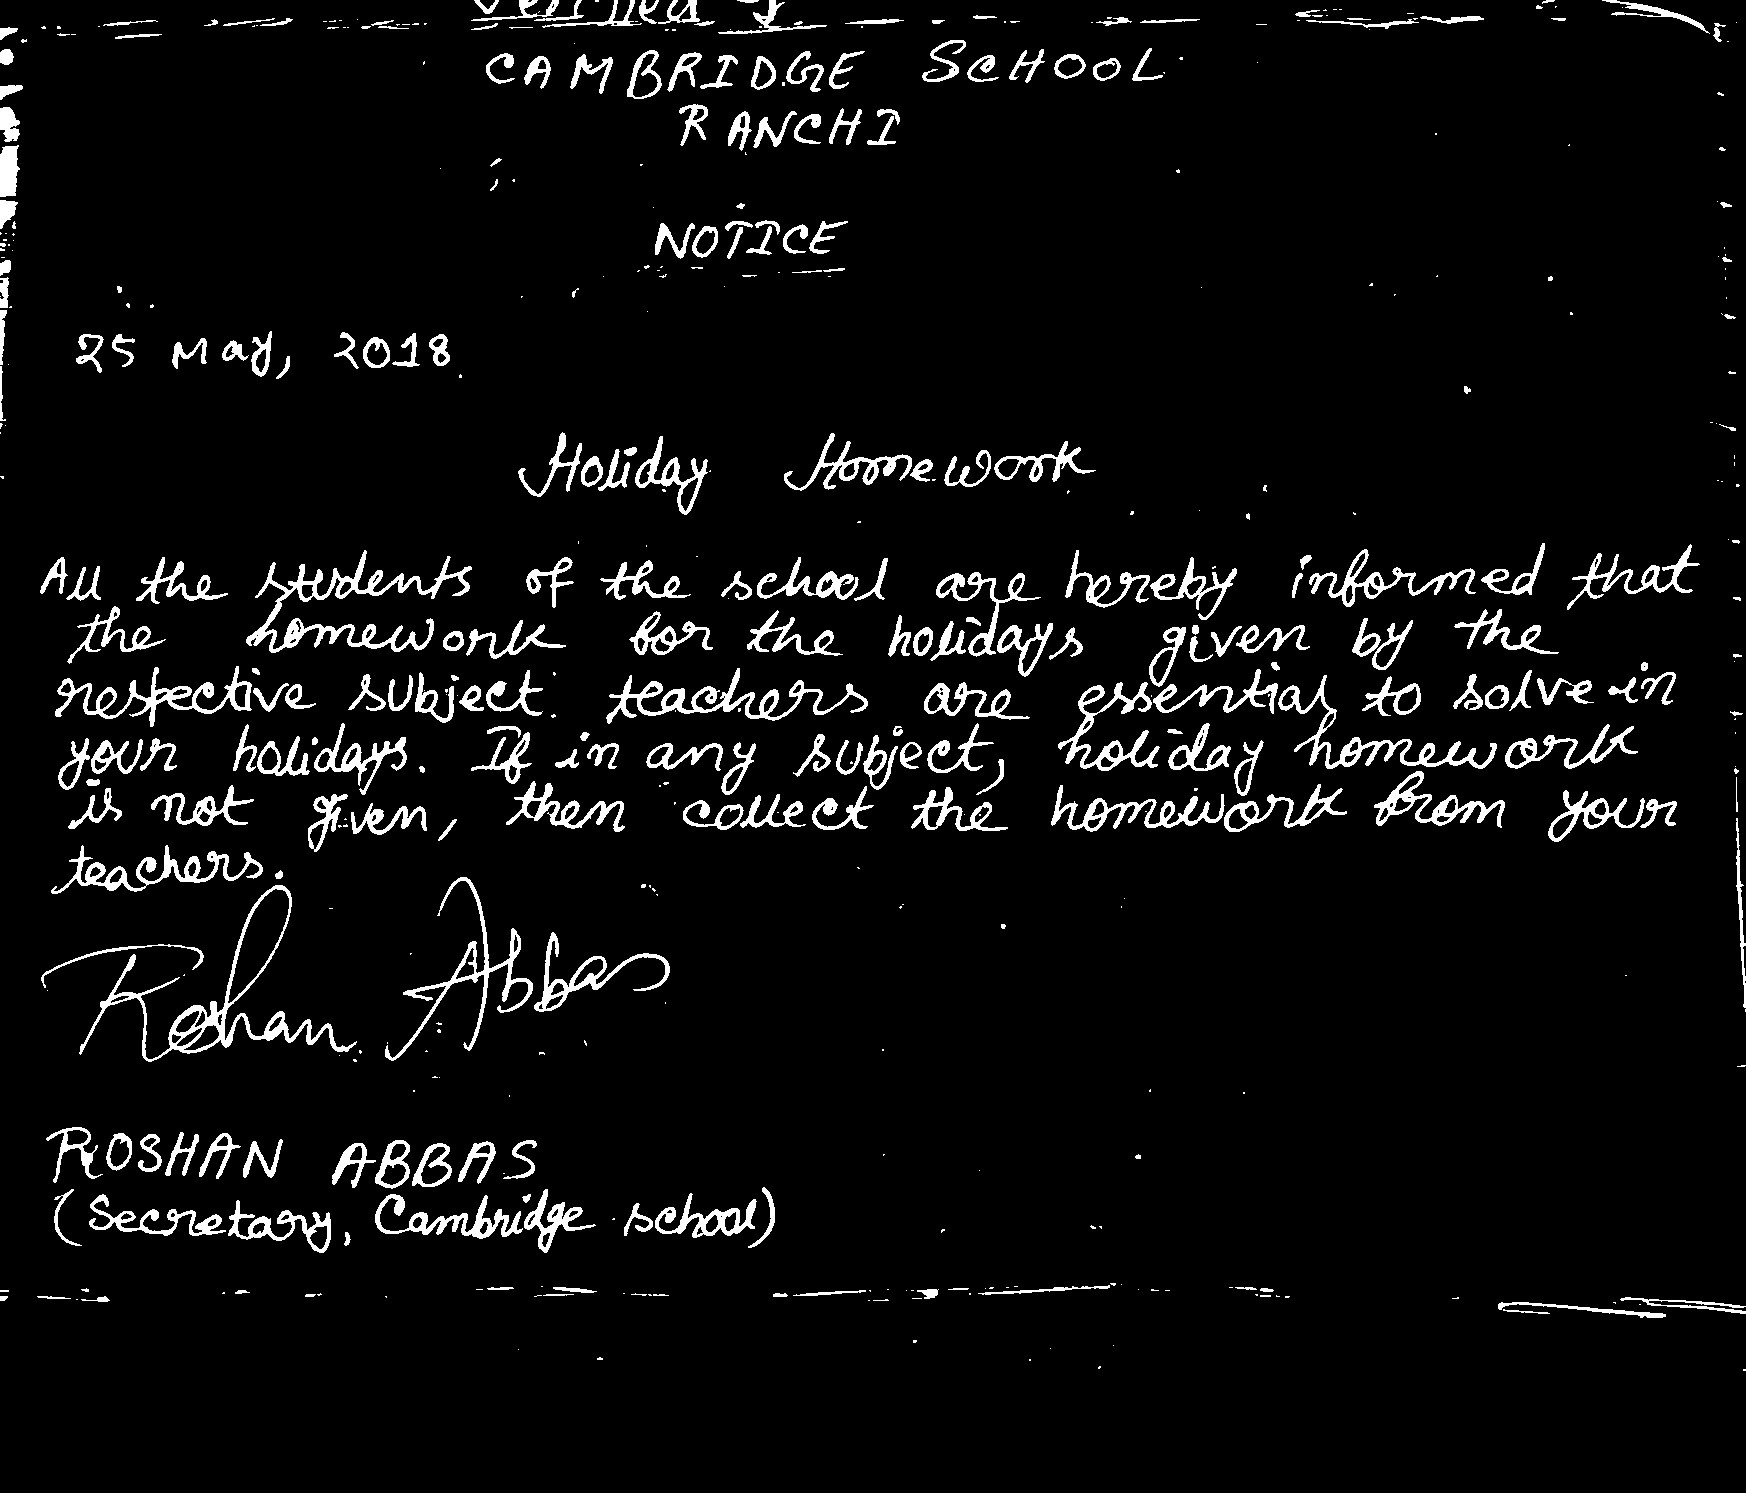 CAMBRIDGE SCHOOL
RANCHI
NOTICE
25 May, 2018
Holiday Homework
All the students of the school are hereby informed that
the homework for the holidays given by the
respective subject teachers are essential to solve in
your holidays. If in any subject, holiday homework
is not given, then collect the homework from your
teachers.
Roshan Abbas
ROSHAN ABBAS
(Secretary, Cambridge school)